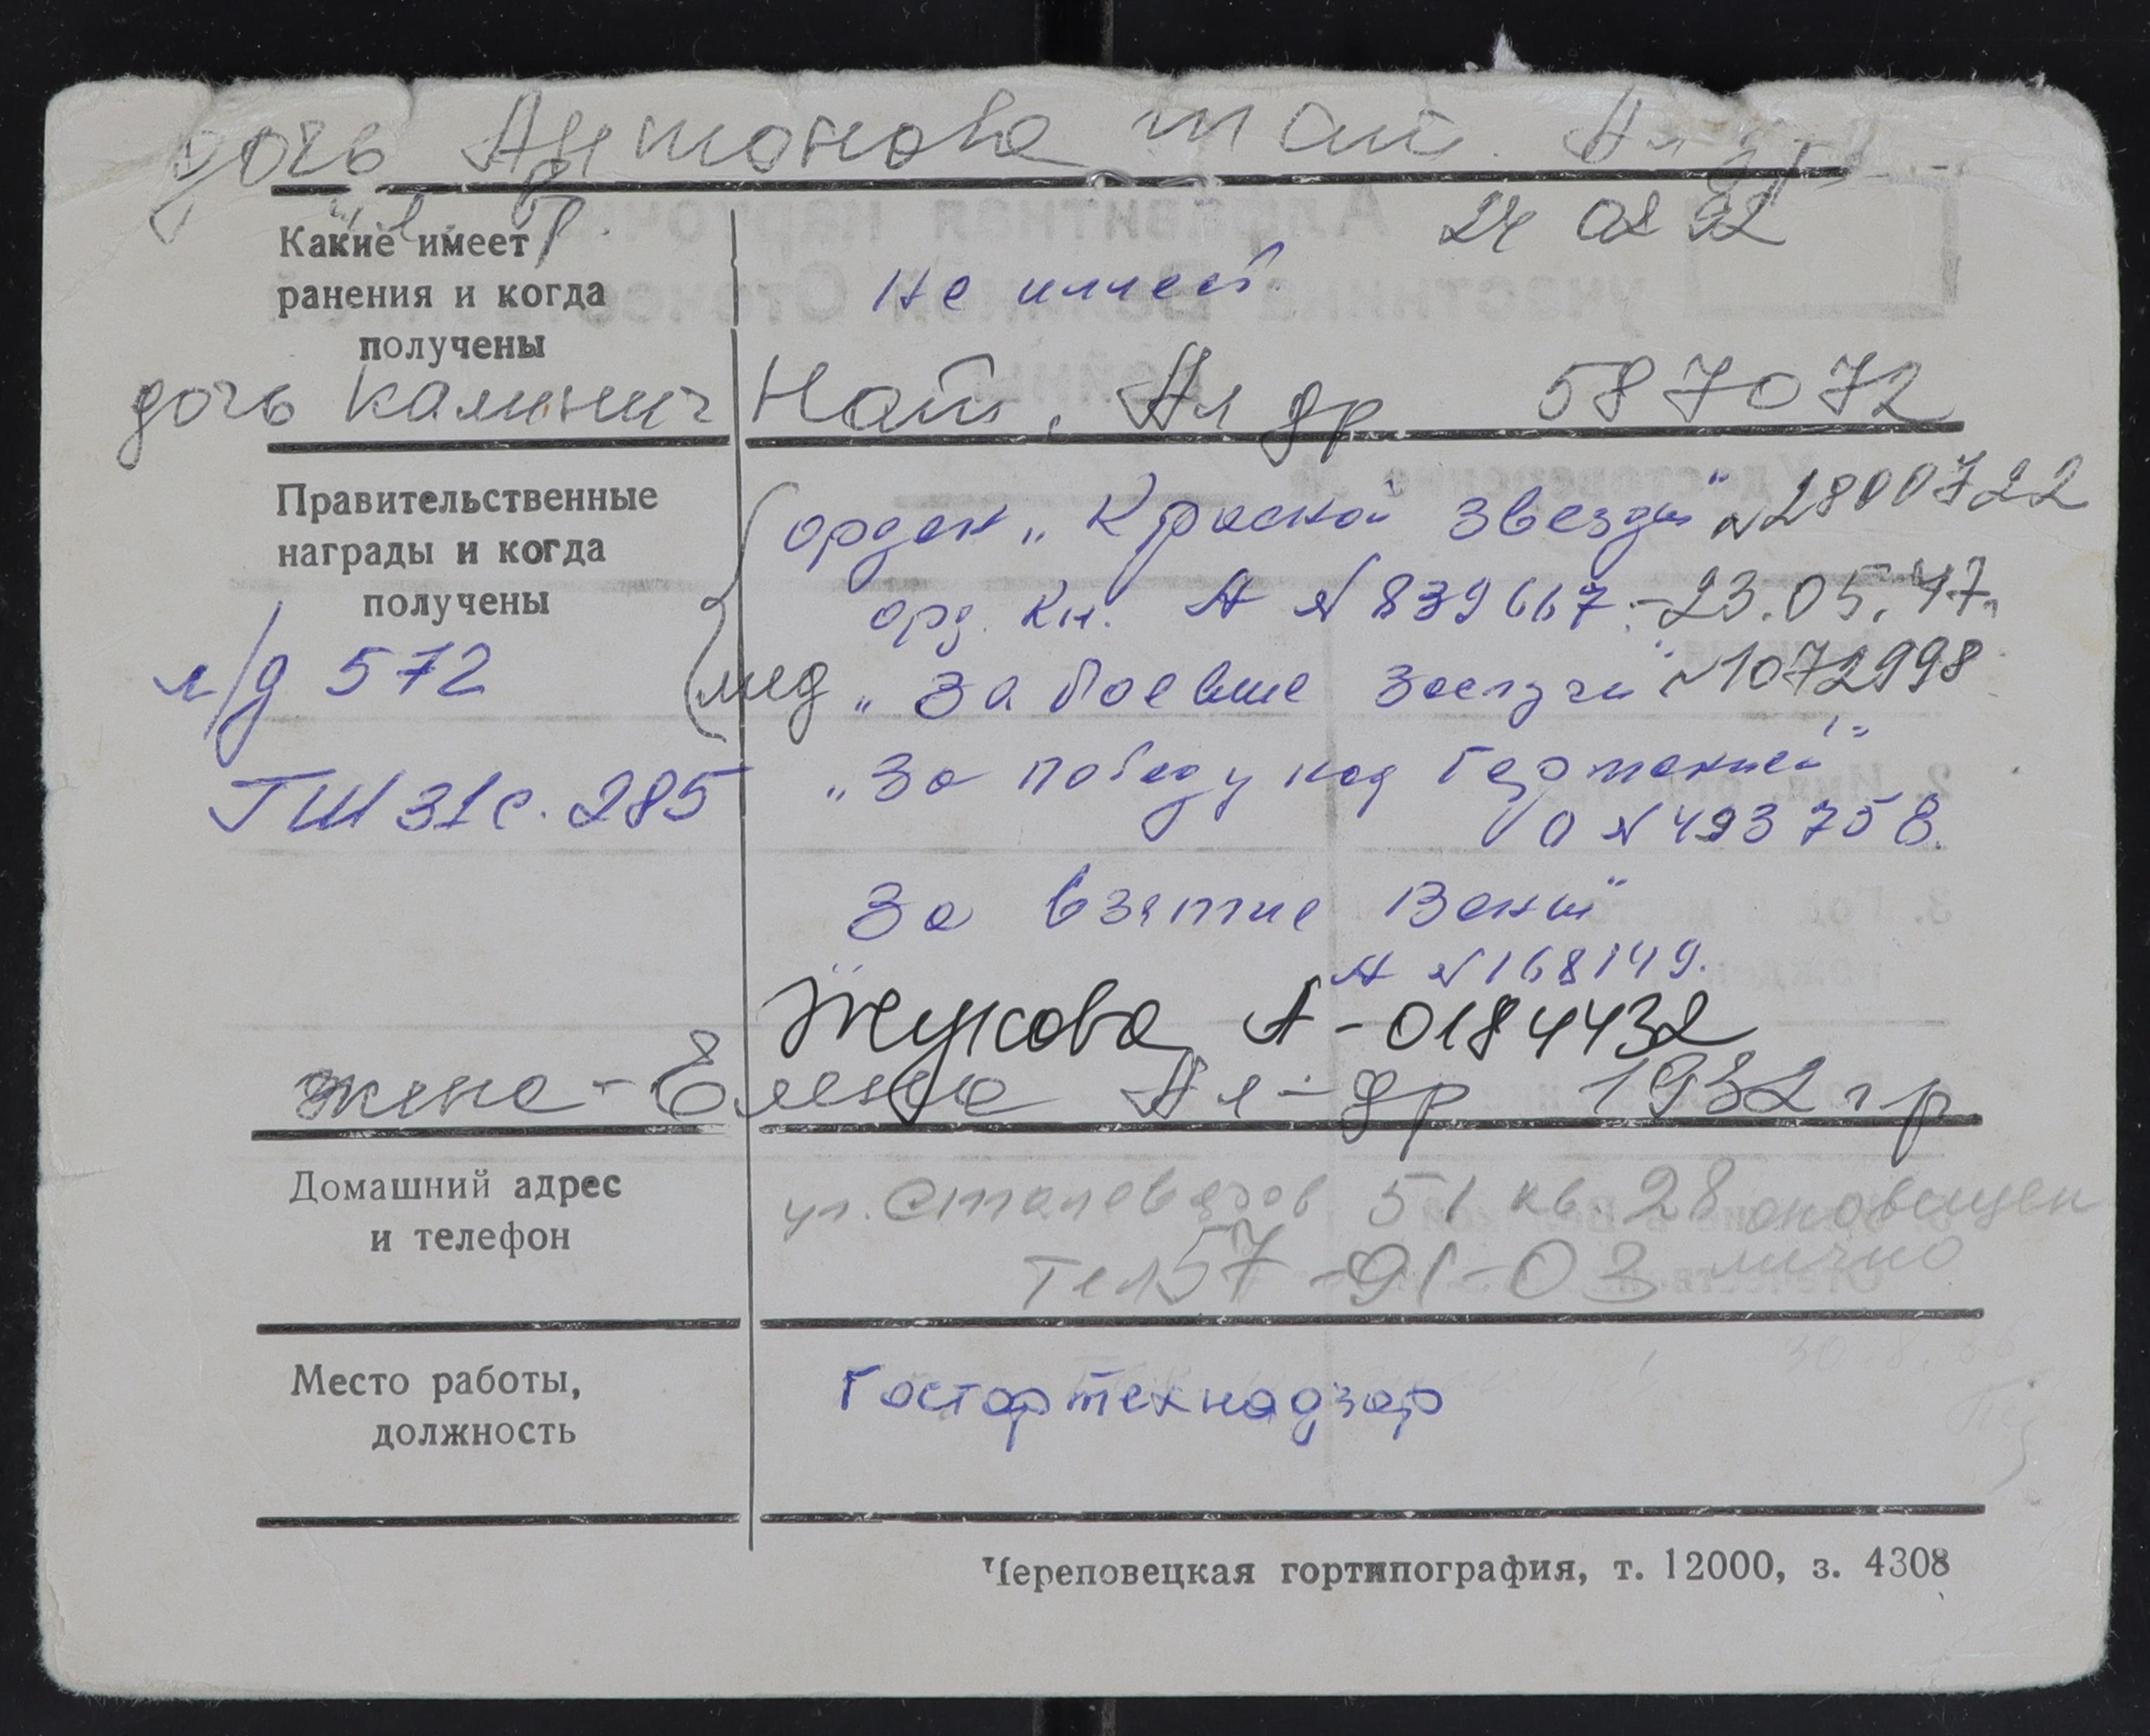 дочь Антонова Тат. Ал
24 02 92
Какие имеет
ранения и когда
получены
не имеет.
дочь Калинич Нат. Ал др 587072
Правительственные
награды и когда
получены
орден „Красной звезды" №2800722
орд. кн. А № 839667 - 23.05.47.
мед „За боевые заслуги" №1072998
л/д 572
„За победу над Германией"
О № 493758.
ГШ 31 с. 285
За взятие Вены"
А № 168149.
Жукова А-0184432
жена - Елена Ал-др 1932 г р
Домашний адрес
и телефон
ул. Сталеваров 51 кв. 28 оповещен
тел 57-91-03 лично
30.8.86
Место работы,
должность
Гостортехнадзор
Череповецкая гортипография, т. 12000, з. 4308